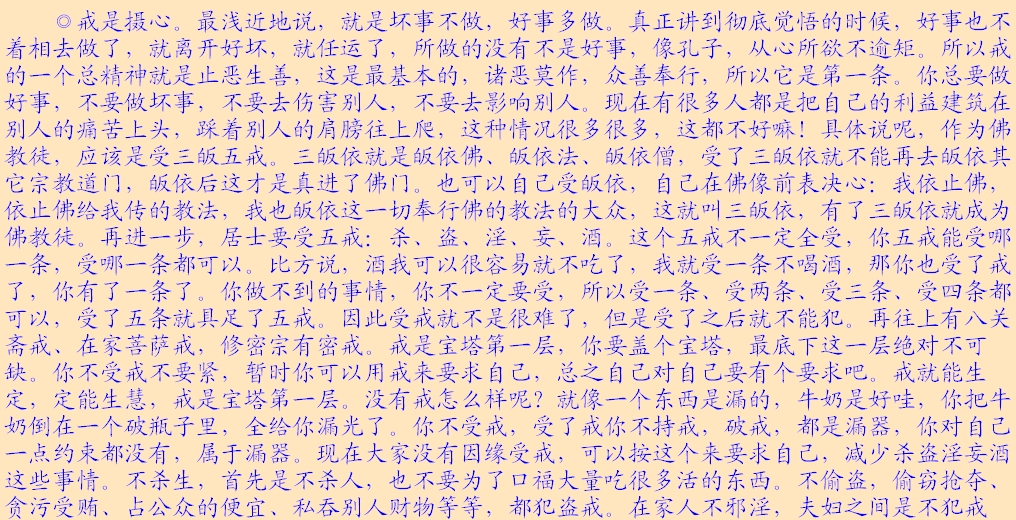 ◎戒是摄心。最浅近地说，就是坏事不做，好事多做。真正讲到彻底觉悟的时候，好事也不
着相去做了，就离开好坏，就任运了，所做的没有不是好事，像孔子，从心所欲不逾矩。所以戒
的一个总精神就是止恶生善，这是最基本的，诸恶莫作，众善奉行，所以它是第一条。你总要做
好事，不要做坏事，不要去伤害别人，不要去影响别人。现在有很多人都是把自己的利益建筑在
别人的痛苦上头，踩着别人的肩膀往上爬，这种情况很多很多，这都不好嘛！具体说呢，作为佛
教徒，应该是受三皈五戒。三皈依就是皈依佛、皈依法、皈依僧，受了三皈依就不能再去皈依其
它宗教道门，皈依后这才是真进了佛门。也可以自己受皈依，自己在佛像前表决心：我依止佛，
依止佛给我传的教法，我也皈依这一切奉行佛的教法的大众，这就叫三皈依，有了三皈依就成为
佛教徒。再进一步，居士要受五戒：杀、盗、淫、妄、酒。这个五戒不一定全受，你五戒能受哪
一条，受哪一条都可以。比方说，酒我可以很容易就不吃了，我就受一条不喝酒，那你也受了戒
了，你有了一条了。你做不到的事情，你不一定要受，所以受一条、受两条、受三条、受四条都
可以，受了五条就具足了五戒。因此受戒就不是很难了，但是受了之后就不能犯。再往上有八关
斋戒、在家菩萨戒，修密宗有密戒。戒是宝塔第一层，你要盖个宝塔，最底下这一层绝对不可
缺。你不受戒不要紧，暂时你可以用戒来要求自己，总之自己对自己要有个要求吧。戒就能生
定，定能生慧，戒是宝塔第一层。没有戒怎么样呢？就像一个东西是漏的，牛奶是好哇，你把牛
奶倒在一个破瓶子里，全给你漏光了。你不受戒，受了戒你不持戒，破戒，都是漏器，你对自己
一点约束都没有，属于漏器。现在大家没有因缘受戒，可以按这个来要求自己，减少杀盗淫妄酒
这些事情。不杀生，首先是不杀人，也不要为了口福大量吃很多活的东西。不偷盗，偷窃抢夺、
贪污受贿、占公众的便宜、私吞别人财物等等，都犯盗戒。在家人不邪淫，夫妇之间是不犯戒